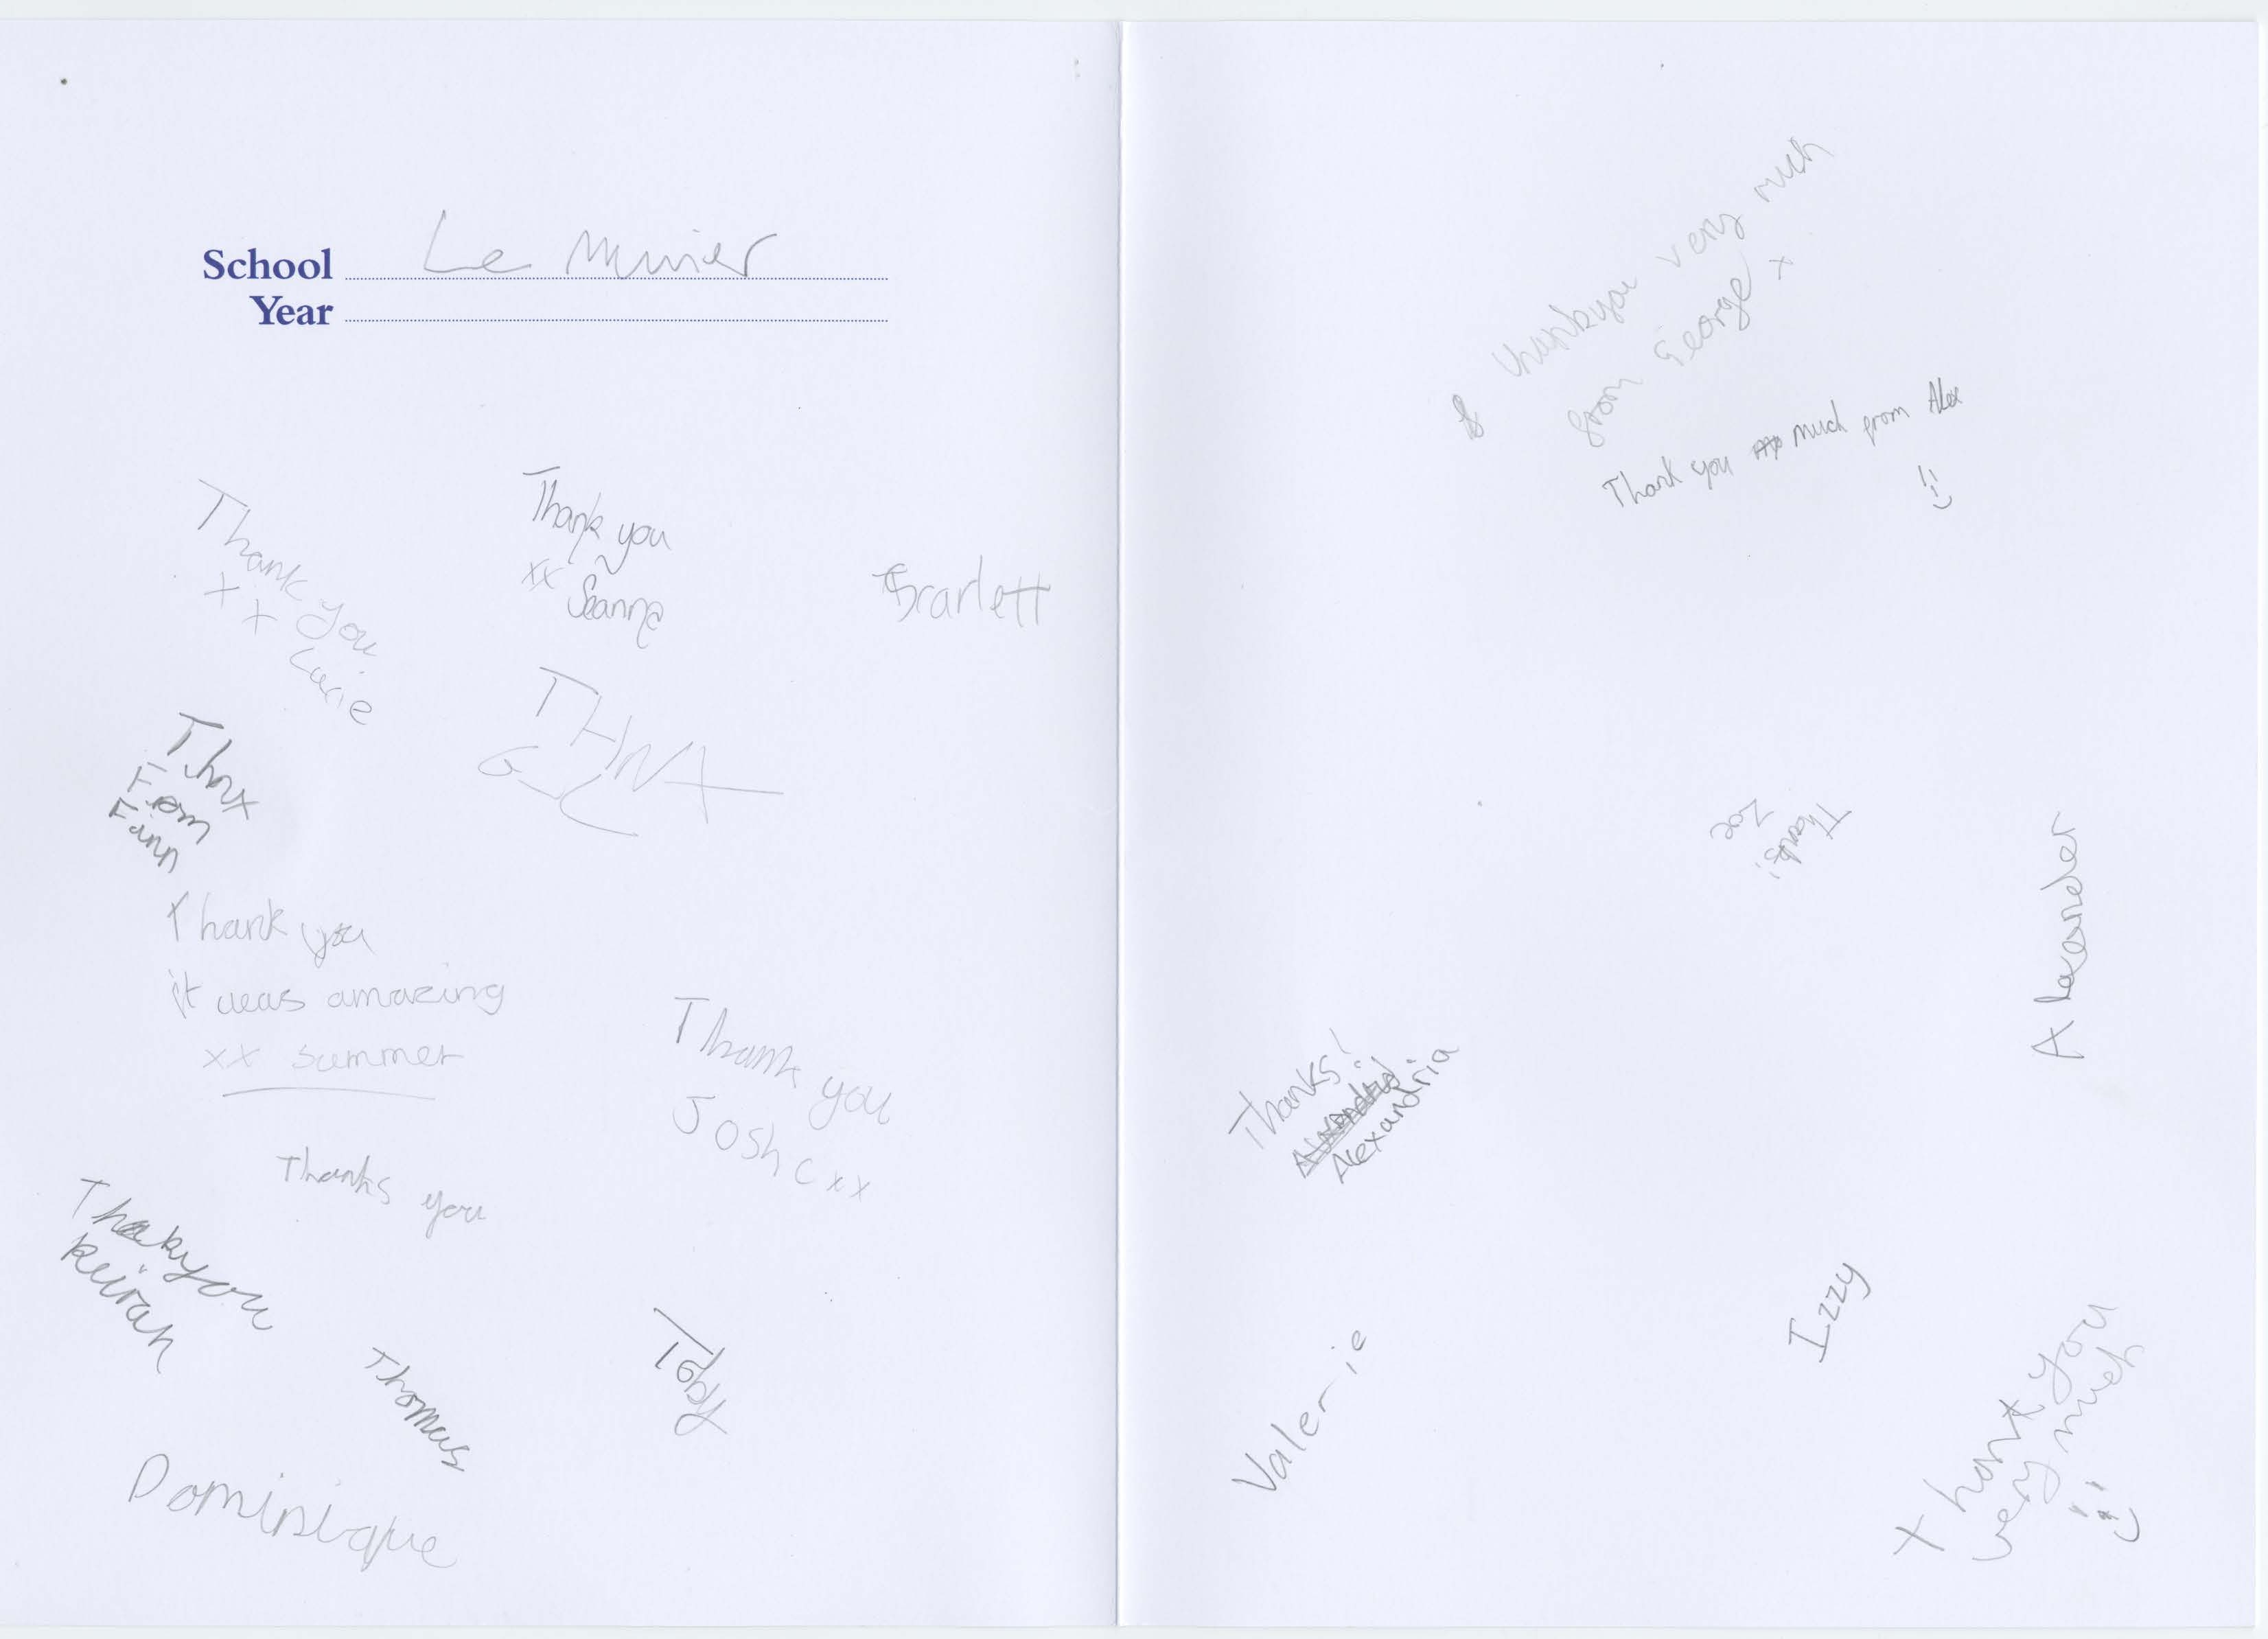 School Le
Year
Thank you
xx
Lucie
Thank you
xx Seanna
Scarlett
Thnx
From
Finn
Thank you
it was amazing
xx Summer
Thank you
Josh C xx
Thanks you
Thankyou
Keirah
Thomas
Toby
Dominique
thankyou very much
from George x
Thank you much from Alex
Thanks!
Zoe
Alexander
Thanks!
Alexandria
Valerie
Izzy
Thank you
very much